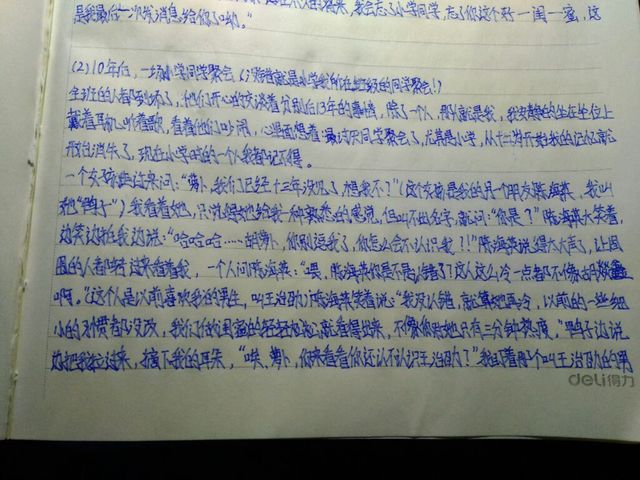 是我最后一次发消息给你了哟。"
(2)10年后,一场小学同学聚会(没错就是小学我所在班级的同学会!)
全班的人都到场了,他们开心的交谈着分别后13年的事情,除了一个人,那就是我,我安静的坐在坐位上
戴着耳机听着歌,看着他们吵闹,心里面想着 最讨厌同学聚会了,尤其是小学,从十二岁开始我的记忆就
开始消失了,现在小学时的一个人我都记不得。
一个女孩跑过来问:"萝卜,我们已经十三年没见了想我不?"(这个女孩是我的另一个朋友陈海燕,我叫
她"鸭子")我看着她,只觉得她给我一种熟悉的感觉,但叫不出名字,就问:"你是?"陈海燕大笑着,
边笑边拍我边说:"哈哈哈……胡萝卜,你别逗我了,你怎么会不认识我?!"陈海燕说得太大声了,让周
围的人都转过来看着我,一个人问陈海燕:"喂,陈海燕你是不是认错了?这人这么冷一点都不像
啊。"(这个人是以前喜欢我的男生,叫王治国)陈海燕笑着说:"我没认错,就算她再冷,以前的一些细
小的习惯都没改,我们
边把我拉过来,摘下我的耳朵,"唉,萝卜,你来看看你还认不认识王治国?"我盯着那个叫王治国的男
deli得力